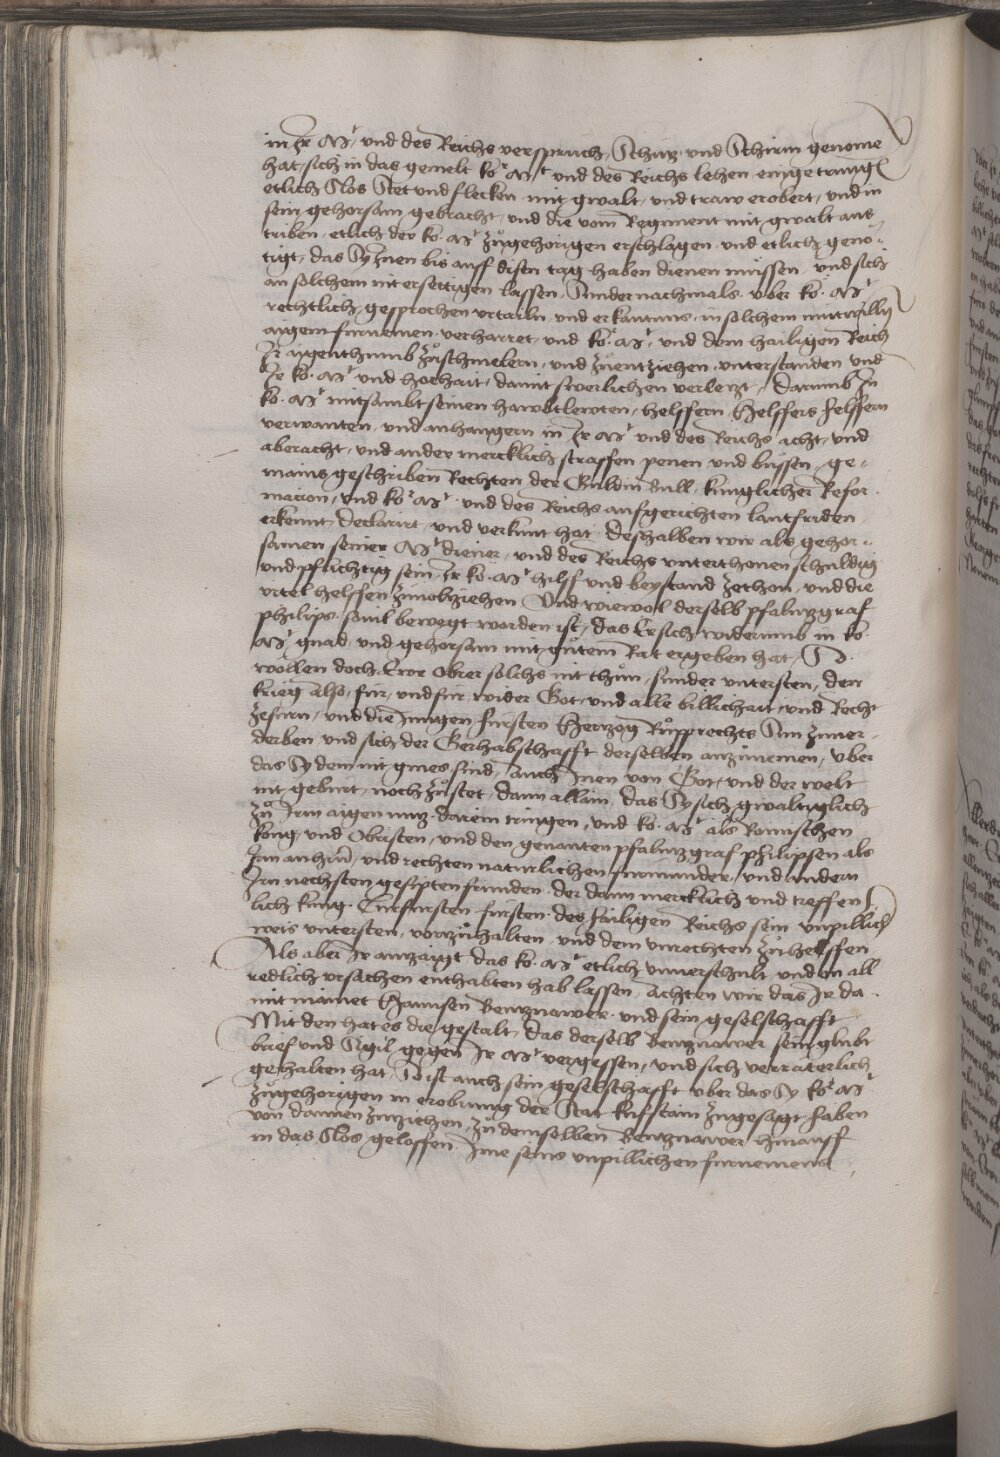 in Ir Mt und des Reichs verspruch, Schutz und Schirm genome
hat, sich in das gemelt ko. Mt und des Reichs lehen eingetrungen
etlich Slos Stet und flecken mit gwalt, und traw erobert, und in
sein gehorsam gebracht, und die vom Regiment mit gwalt aus-
triben, etlich der ko. Mt zugehorigen erschlagen, und etlich geno-
tigt, das Sy Inen bis auff disen tag haben dienen müssen, und sich
an solchem nit ersettigen lassen, Sunder nachmals uber ko. Mt
rechtlich gesprochen urtailn und erkantnus, in solchem mutwillig
aigem furnemen verharret, und ko. Mt, und dem hailigen Reich
Ir aigenthumb zuschmelern, und zuentziehen, unterstanden und
Ir ko. Mt und hochait, damit swerlichen verletzt, Darumb In
ko. Mt mitsambt seinen hawbtlewten, helffern, Helffers helffern
verwanten, und anhangern in Ir Mt und des Reichs acht, und
aberacht, und ander mercklich straffen penen und bussen, ge-
mains geschriben Rechten der Guldin Bull, kunglicher Refor-
macion, und ko. Mt und des Reichs aufgerichten lantfriden
erkennt, declarirt, und verkunt hat, deshalben wir als gehor-
samen seiner Mt diener, und des Reichs unterthonen schuldig
und pflichtig sein, Ir ko. Mt hilff und beystand zethon, und die
urtel helffen zuuolziehen Und wiewol derselb pfaltzgraf
philips, souil bewegt worden ist, das Er sich widerumb in ko.
Mt gnad, und gehorsam mit gutem Rat ergeben hat, So
wollen doch Ewr Obrer solchs nit thun, sunder untersten, den
krieg also, fur, und fur, wider Got, und alle billichait, und Recht
zefurn, und die Jungen fursten Hertzog Ruprechts Sun zuuer-
derben, und sich der Gerhabschafft derselben anzunemen, uber
das Sy dem nit gmes sind, Auch Inen von Got, und der welt
nit geburt, noch zustet, dann allain, das Sy sich gwaltiglich
zu Irm aigen nutz darein tringen, und ko. Mt als Romischen
kong, und Obristen, und den genanten pfaltzgraf philipsen als
Irn anhern, und rechten naturlichen furmunder, und andern
Irn nechsten gesipten frunden, der dann mercklich und treffen-
lich kung, Curfursten, fursten, des hailigen Reichs sein, unpillich
weis untersten, vorzuhalten, und dem unrechten zuhelffen
Als aber Ir anzaigt das ko. Mt etlich unuerschult, und on all
redlich ursachen enthabten hab lassen, Achten wir das Ir da-
mit mainet Hannsen Bentznawer, und sein geselschafft
Mit den hat es die gestalt, das derselb Bentznawer sein glubt
brief und Sigil gegen Ir Mt vergessen, und sich verraterlich
gehalten hat, So ist auch sein geselschafft uber das Sy ko. Mt
zugehorigen in eroberung der Stat kufstain zugesagt haben
von dannen zuziehen, zu demselben Bentznawer hinauff
in das Slos geloffen, Ime seins unpillichen furnemens